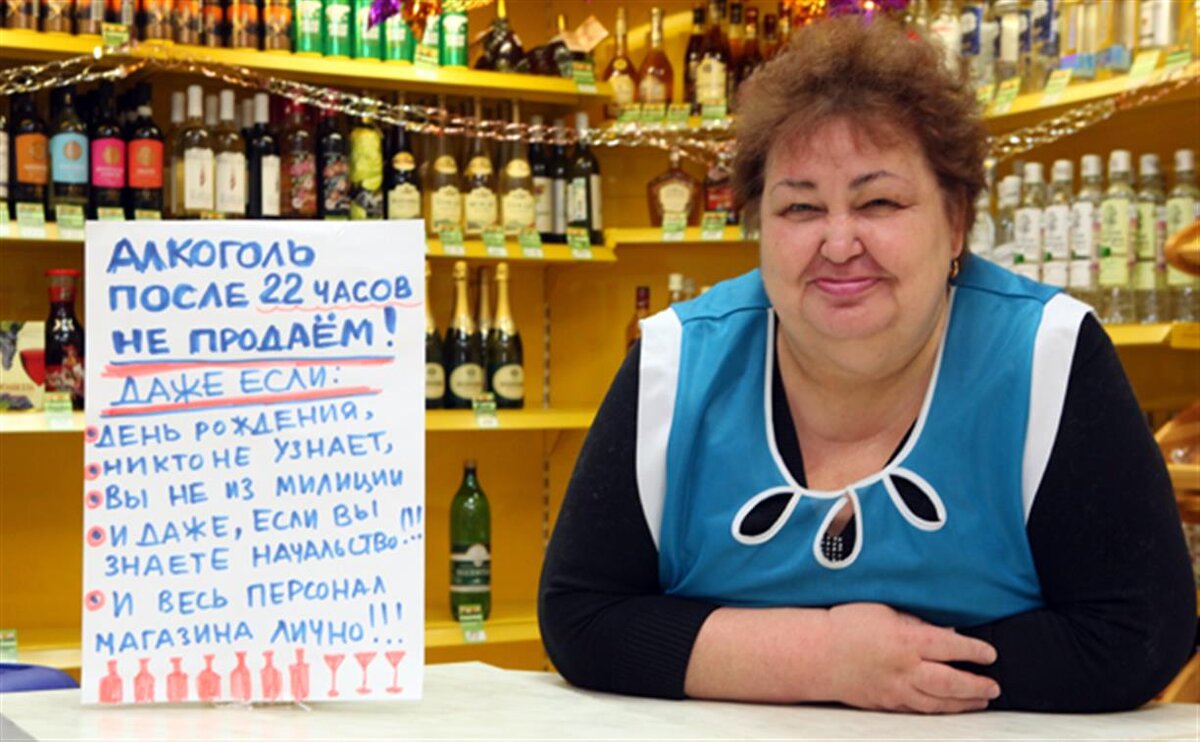 АЛКОГОЛЬ
ПОСЛЕ 22 ЧАСОВ
НЕ ПРОДАЁМ!
ДАЖЕ ЕСЛИ:
ДЕНЬ РОЖДЕНИЯ,
НИКТО НЕ УЗНАЕТ,
ВЫ НЕ ИЗ МИЛИЦИИ
И ДАЖЕ, ЕСЛИ ВЫ
ЗНАЕТЕ НАЧАЛЬСТВО!!!
И ВЕСЬ ПЕРСОНАЛ
МАГАЗИНА ЛИЧНО!!!